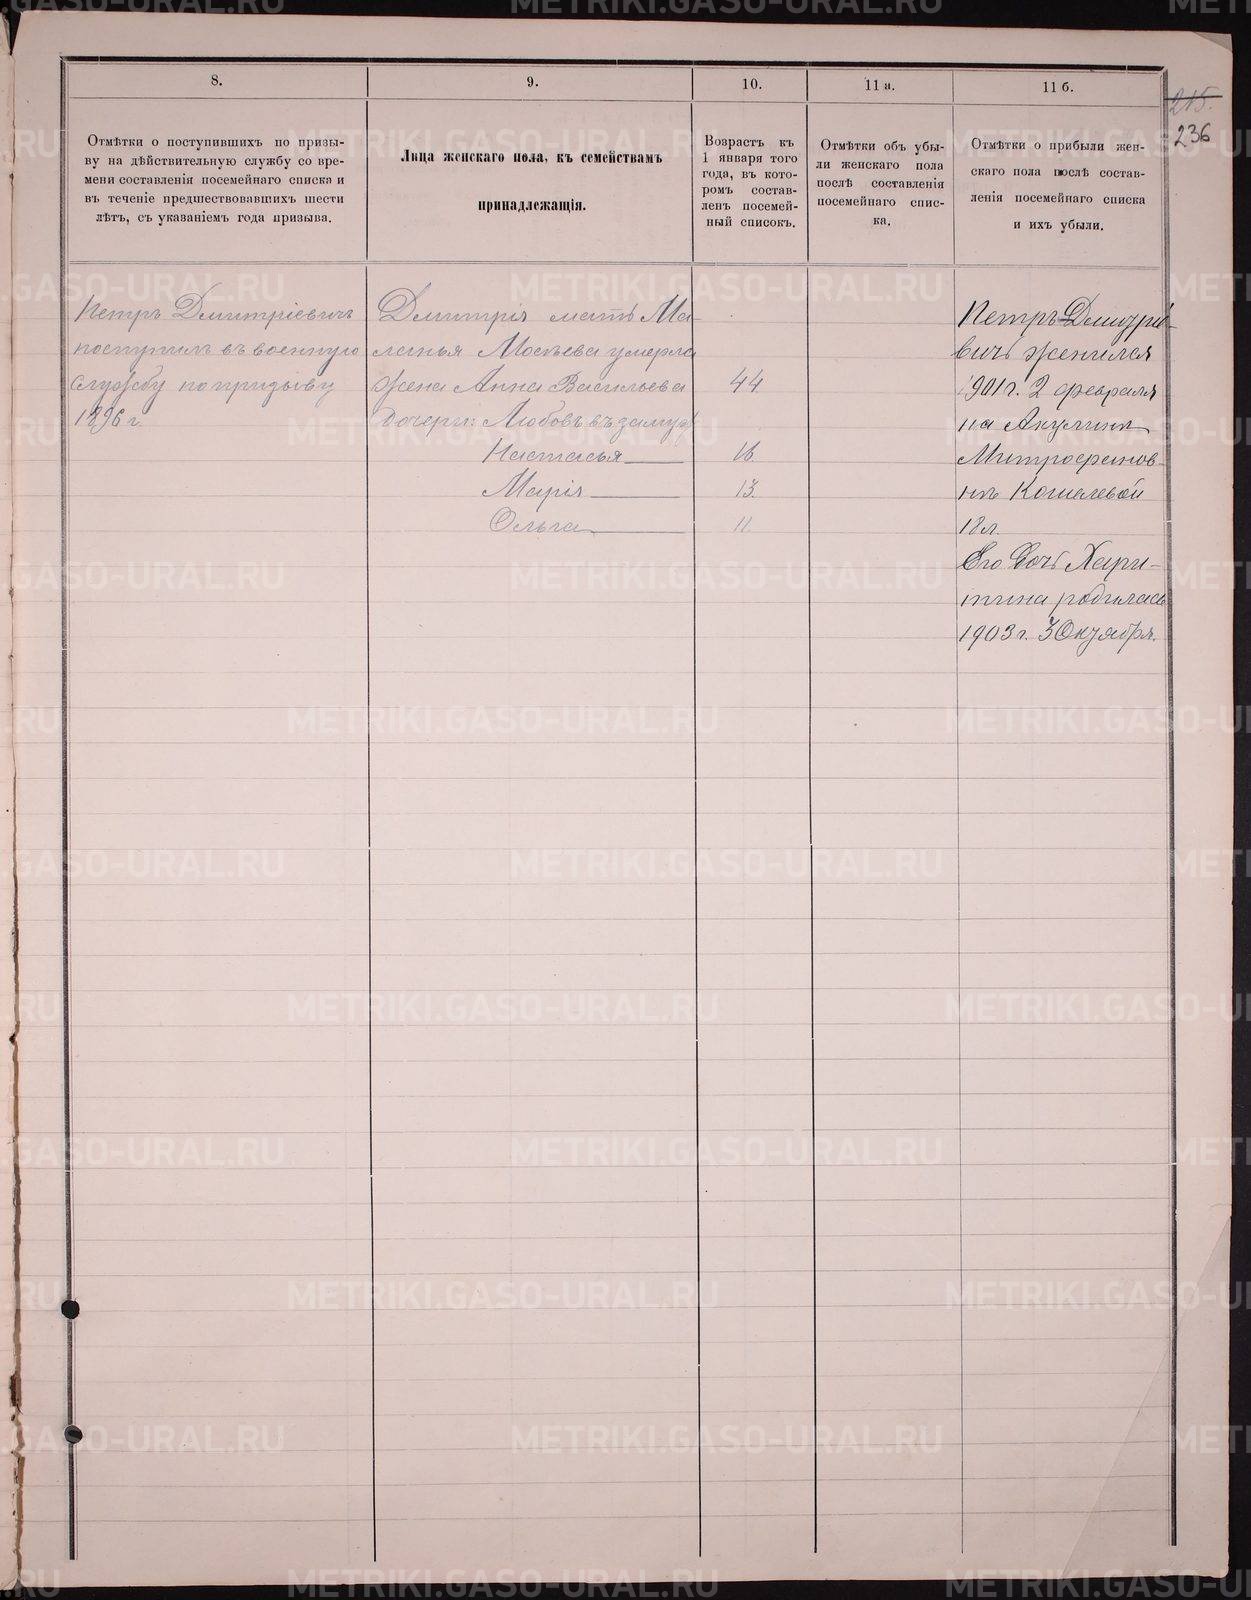 8.
9.
10.
11 а.
11 б.
215.
236
Отмѣтки о поступившихъ по призы-
ву на дѣйствительную службу со вре-
мени составленія посемейнаго списка и
въ теченіе предшествовавшихъ шести
лѣтъ, съ указаніемъ года призыва.
Лица женскаго пола, къ семействамъ
принадлежащія.
Возрастъ къ
1 января того
года, въ кото-
ромъ состав-
ленъ посемей-
ный списокъ.
Отмѣтки объ убы-
ли женскаго пола
послѣ составленія
посемейнаго спис-
ка.
Отмѣтки о прибыли жен-
скаго пола послѣ состав-
ленія посемейнаго списка
и ихъ убыли.
Петръ Дмитріевичъ
поступилъ въ военную
службу по призыву
1896 г.
Дмитрія мать Ма-
ланья умерла
жена Анна Васильева 44
дочери: Любовь въ замуж
Настасья 16
Марія 13
Ольга 11
Петръ Дмитріе-
вичъ женился
1901 г. 2 февраля
на Акулинѣ
Митрофанов-
нѣ Кошелевой
18 л.
Его дочь Хари-
тина родилась
1903 г. 3 Октября.
METRIKI.GASO-URAL.RU